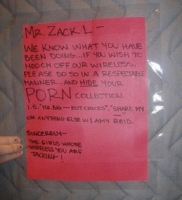 MR. ZACK L -
WE KNOW WHAT YOU HAVE
BEEN DOING. IF YOU WISH TO
MOOCH OFF OUR WIRELESS,
PLEASE DO SO IN A RESPECTABLE
MANNER AND HIDE YOUR
PORN COLLECTION
I.E.
OR ANYTHING ELSE W/ AMY REID.
SINCERELY -
THE GIRLS WHOSE
WIRELESS YOU ARE